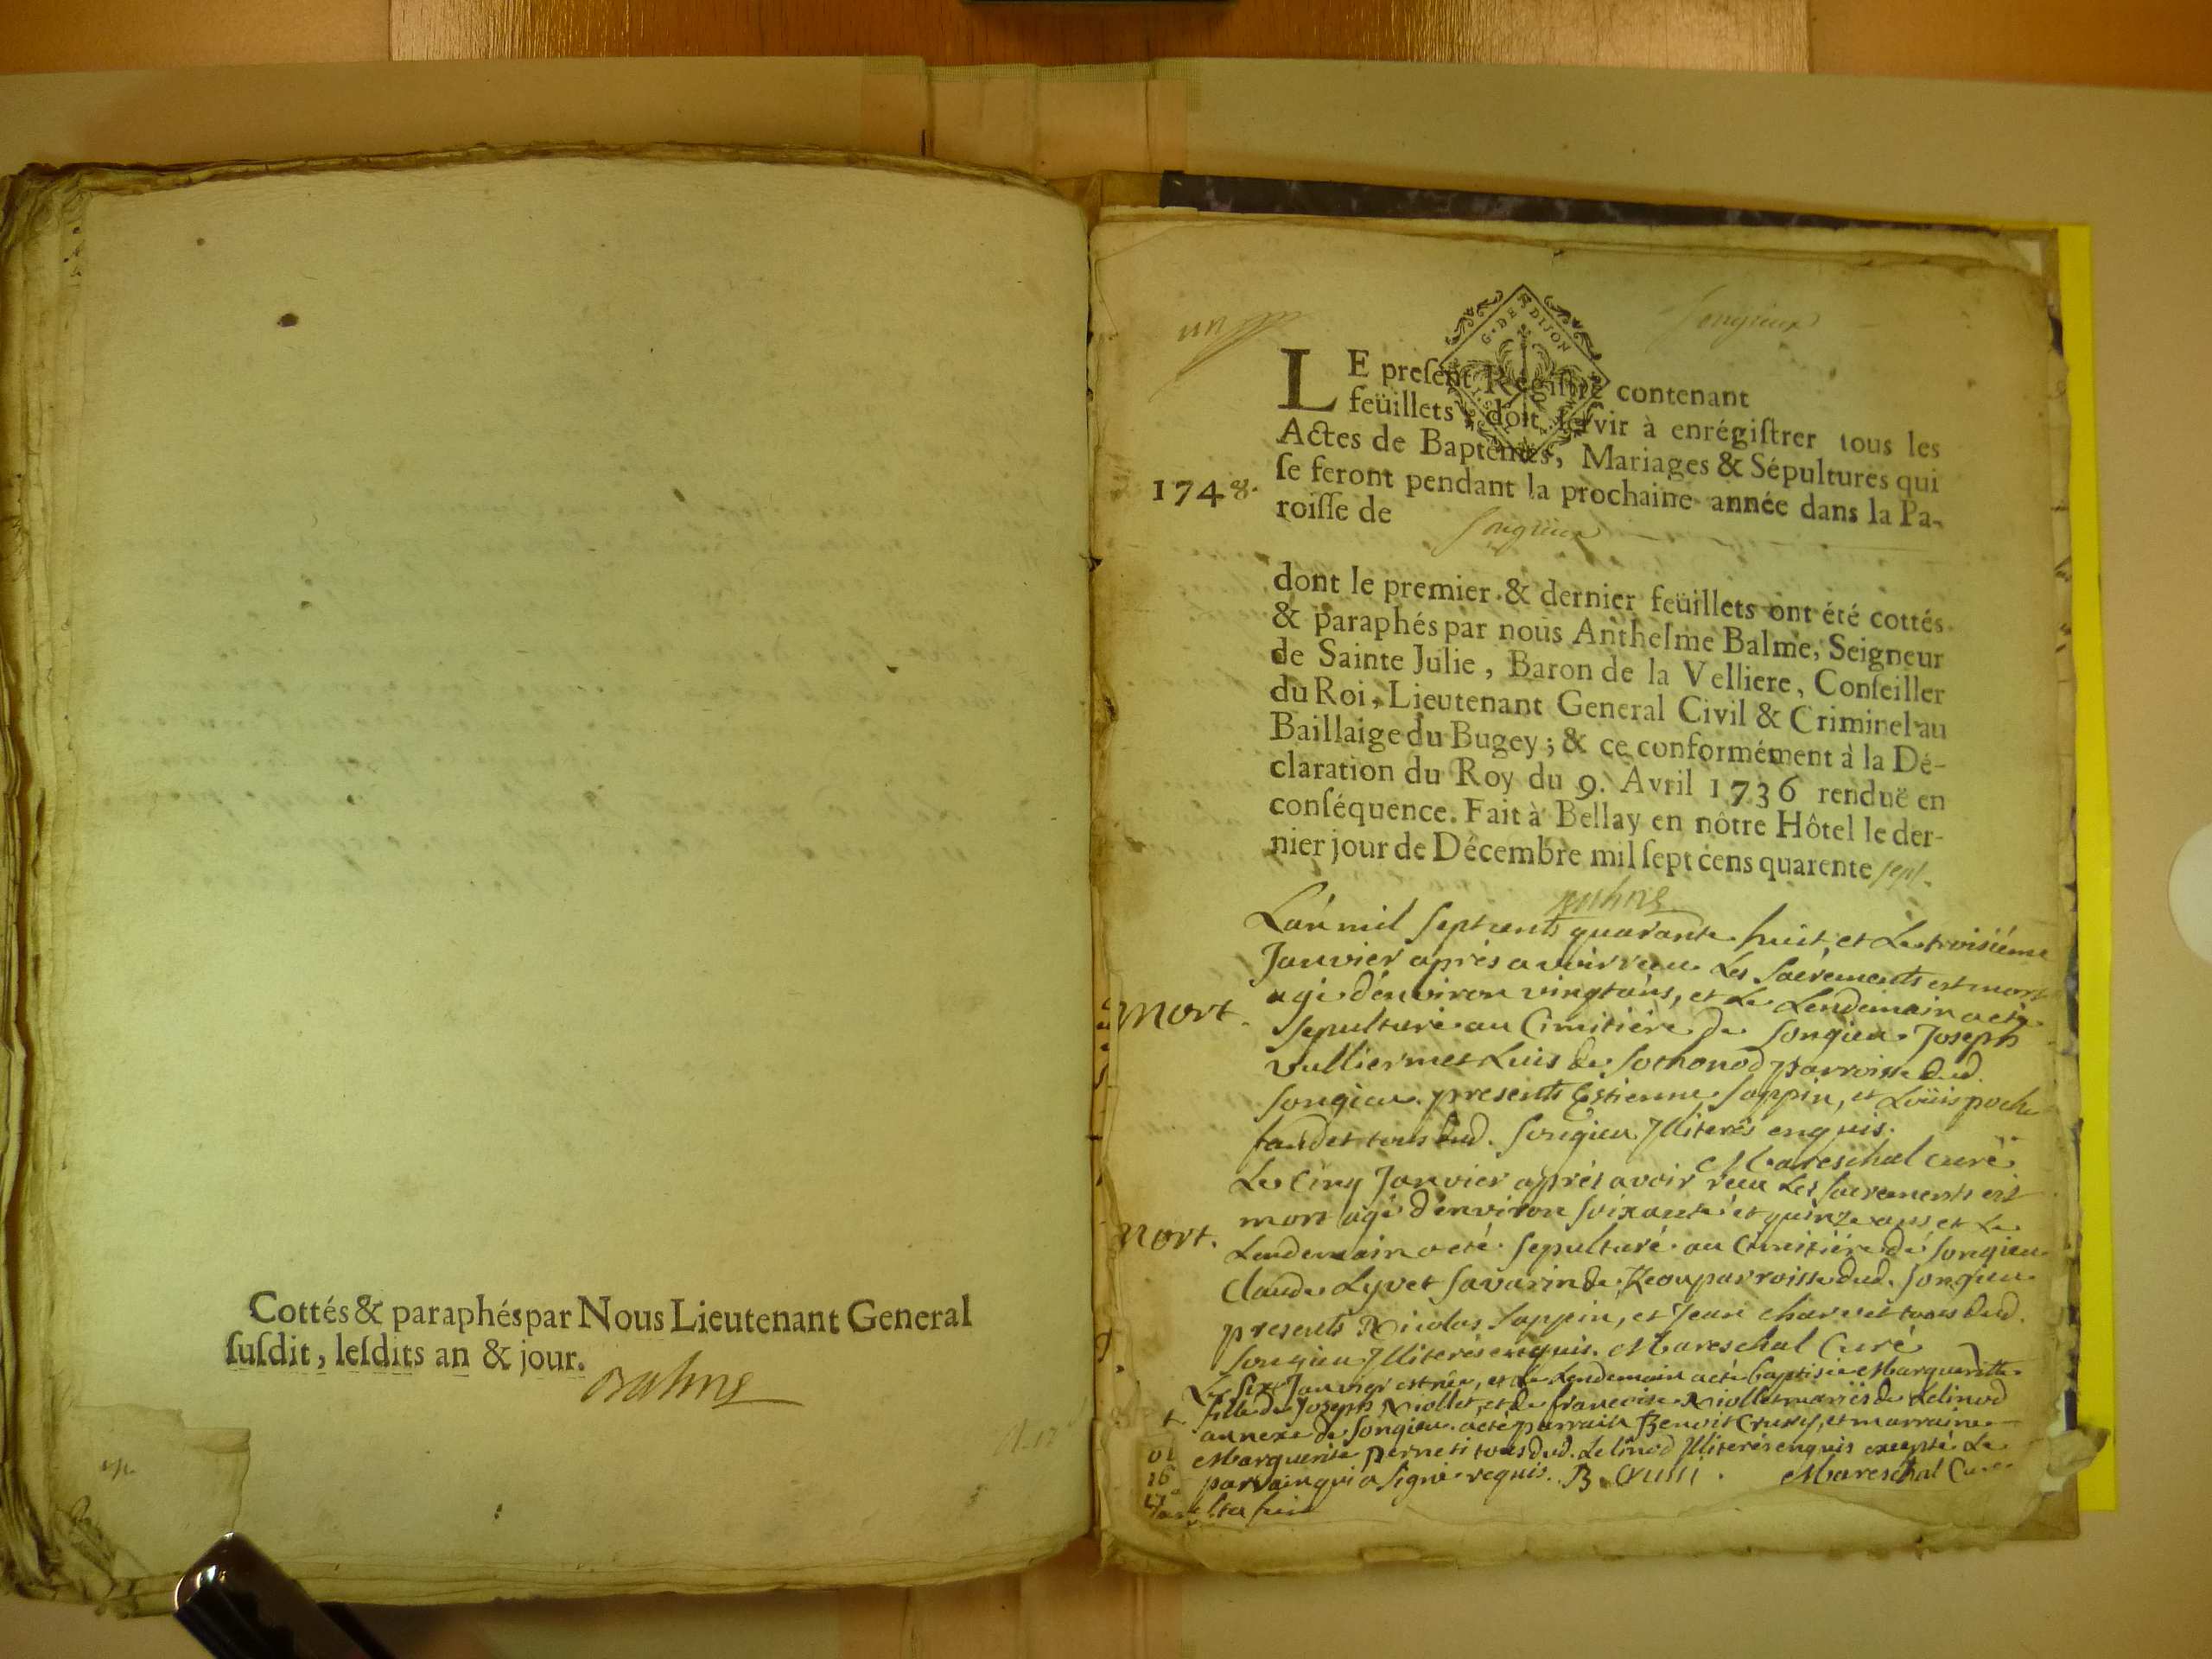 Cottés & paraphés par Nous Lieutenant General
ſuſdit, leſdits an & jour.
Balme
un
Songieux
G. DE DIJON
LE preſent Régiſtre contenant
feüillets, doit ſervir à enrégiſtrer tous les
Actes de Baptêmes, Mariages & Sépultures qui
1748. ſe feront pendant la prochaine année dans la Pa-
roiſſe de Songieux
dont le premier & dernier feüillets ont été cottés
& paraphés par nous Anthelme Balme, Seigneur
de Sainte Julie, Baron de la Velliere, Conſeiller
du Roi, Lieutenant General Civil & Criminel au
Baillaige du Bugey; & ce conformément à la Dé-
claration du Roy du 9. Avril 1736 renduë en
conſéquence. Fait à Bellay en nôtre Hôtel le der-
nier jour de Décembre mil ſept cens quarente sept.
Balme
L'an mil sept cents quarante huit et Le troisiéme
Janvier aprés avoir receu Les sacrements est mort
agé d'environ vingt ans, et Le Lendemain a eté
mort. sepulturé au Cimitiére de songieu Joseph
vulliermet Luis de sothonod parroisse dud.
songieu. presents Estienne sappin, et Loüis poche
faudet tous dud. songieu Illiterés enquis.
Mareschal curé
Le Cinq Janvier aprés avoir receu Les sacrements est
mort agé d'environ soixante et quinze ans et Le
mort. Lendemain a eté sepulturé au Cimitiére de songieu
Claude Lyvet savarin de parroisse dud. songieu
presents Nicolas sappin, et Jean charvet tous dud.
songieu Illiterés enquis. Mareschal Curé
Le six Janvier est née, et Le Lendemain a eté baptisée Margueritte
fille de Joseph Niollet, et de francoise Niollet mariés de Lelinod
annexe de songieu. a eté parrain Benoit Crussy, et marraine
Marguerite perneti tous dud. Lelinod Illiterés enquis excepté Le
parrain qui a signé requis. B. Crussi. Mareschal Curé